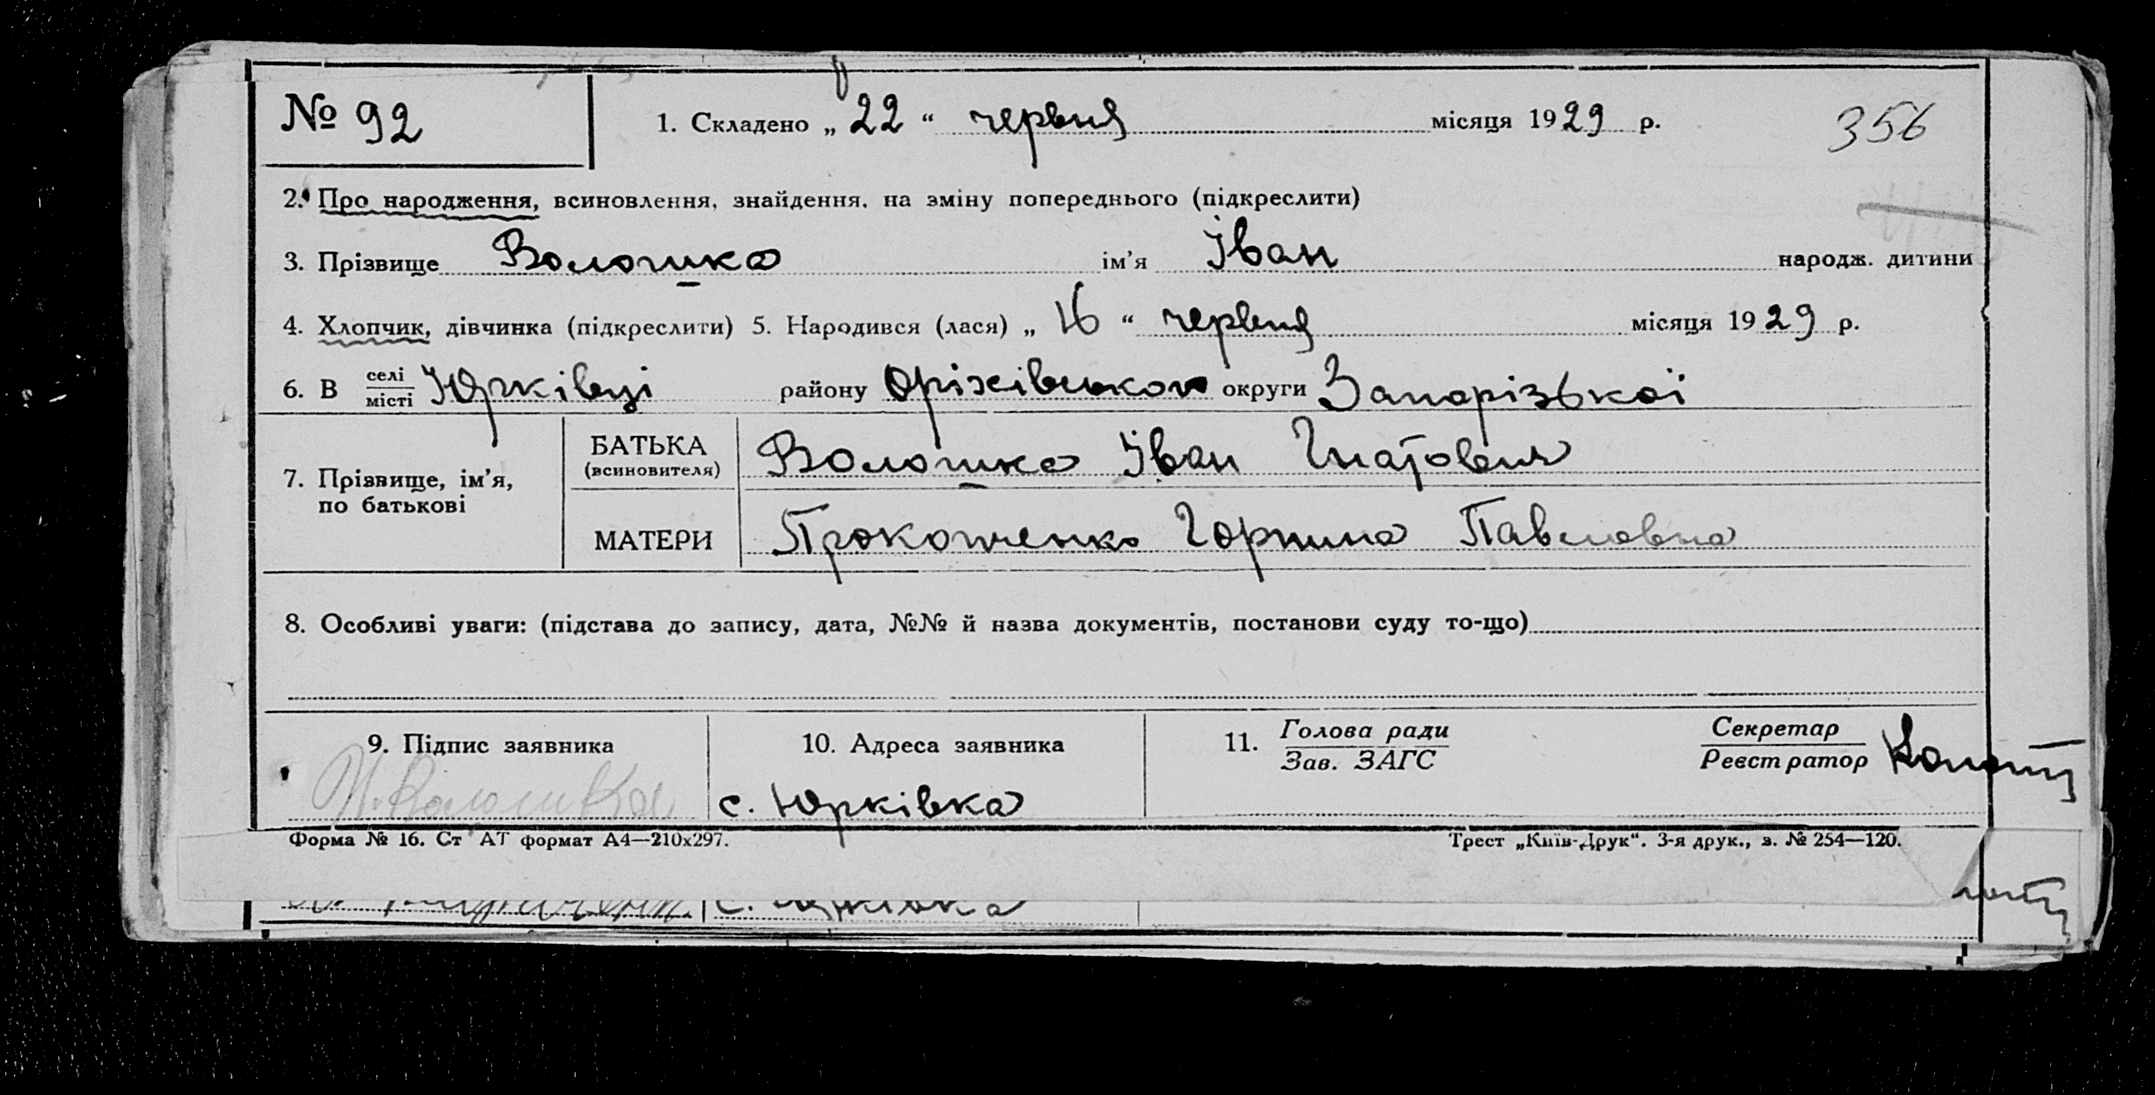 № 92 1. Складено „ 22 “ червня місяця 1929 р. 356
2. Про народження, всиновлення, знайдення, на зміну попереднього (підкреслити)
3. Прізвище Волошко ім’я Іван народж. дитини
4. Хлопчик, дівчинка (підкреслити) 5. Народився (лася) „ 16 “ червня місяця 1929 р.
6. В селі/місті Юрківці району Оріхівського округи Запорізької
7. Прізвище, ім’я, по батькові
БАТЬКА (всиновителя) Волошко Іван Гнатович
МАТЕРИ Прокопченко Горпина Павловна
8. Особливі уваги: (підстава до запису, дата, №№ й назва документів, постанови суду то-що)
9. Підпис заявника 10. Адреса заявника 11. Голова ради Секретар
Зав. ЗАГС Реєстратор
с. Юрківка
Форма № 16. Ст АТ формат А4—210х297. Трест „Київ-Друк“. 3-я друк., з. № 254—120.